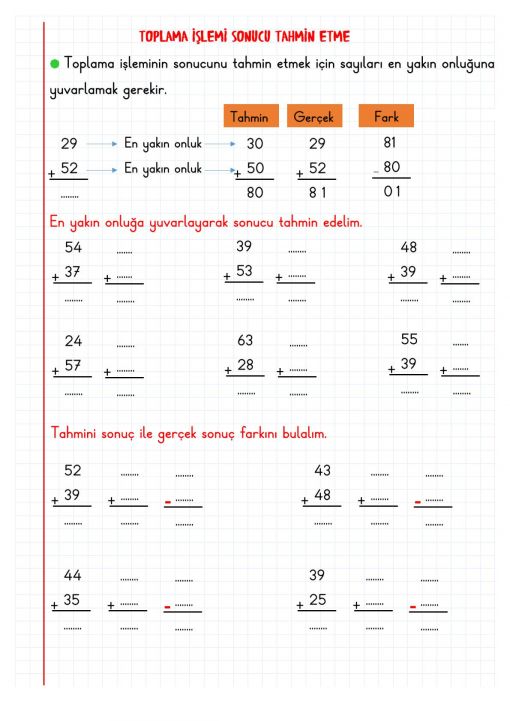 TOPLAMA İŞLEMİ SONUCU TAHMİN ETME
Toplama işleminin sonucunu tahmin etmek için sayıları en yakın onluğuna
yuvarlamak gerekir.
Tahmin Gerçek Fark
29 En yakın onluk 30 29 81
+ 52 En yakın onluk + 50 + 52 - 80
........ 80 8 1 0 1
En yakın onluğa yuvarlayarak sonucu tahmin edelim.
54 ....... 39 ........ 48 ........
+ 37 + ....... + 53 + ........ + 39 + ........
........ ........ ........ ........ ........ ........
24 ........ 63 ........ 55 .......
+ 57 + ........ + 28 + ........ + 39 + ........
........ ........ ........ ........ ........ ........
Tahmini sonuç ile gerçek sonuç farkını bulalım.
52 ........ ........ 43 ........ ........
+ 39 + ........ - ........ + 48 + ........ - ........
........ ........ ........ ........ ........ ........
44 ........ ........ 39 ........ ........
+ 35 + ........ - ........ + 25 + ........ - ........
........ ........ ........ ........ ........ ........